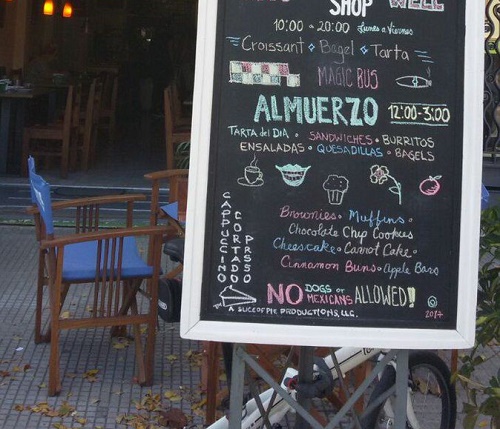 SHOP WELL
10:00 a 20:00 Lunes a Viernes
Croissant Bagel Tarta
MAGIC BUS
ALMUERZO 12:00-3:00
TARTA del DIA • SANDWICHES • BURRITOS
ENSALADAS • QUESADILLAS • BAGELS
CAPPUCCINO
CORTADO
Brownies • Muffins •
Chocolate Chip Cookies
Cheesecake • Carrot Cake •
Cinnamon Buns • Apple Bars
NO DOGS or MEXICANS ALLOWED!!
2014